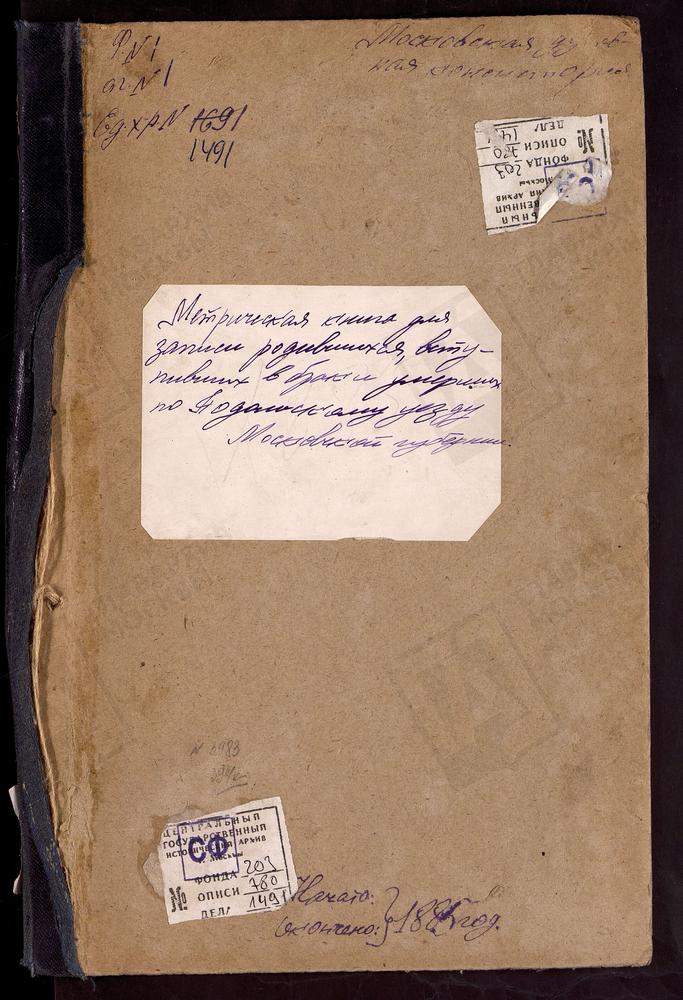 Ф. N 1
оп. N 1
Ед. хр. N 1691
1491
Московская духов-
ная консистория
№
ДЕЛА 1491
ОПИСИ 780
ФОНДА 203
Москвы
Метрическая книга для
записи родившихся, всту-
пивших в брак и умерших
по Подольскому уезду
Московской губернии.
N 3983
ЦЕНТРАЛЬНЫЙ
ГОСУДАРСТВЕННЫЙ
ИСТОРИЧЕСКИЙ АРХИВ
г. Москвы
СФ
№ ФОНДА 203
ОПИСИ 780
ДЕЛА 1491
Начато:
Окончено: } год.